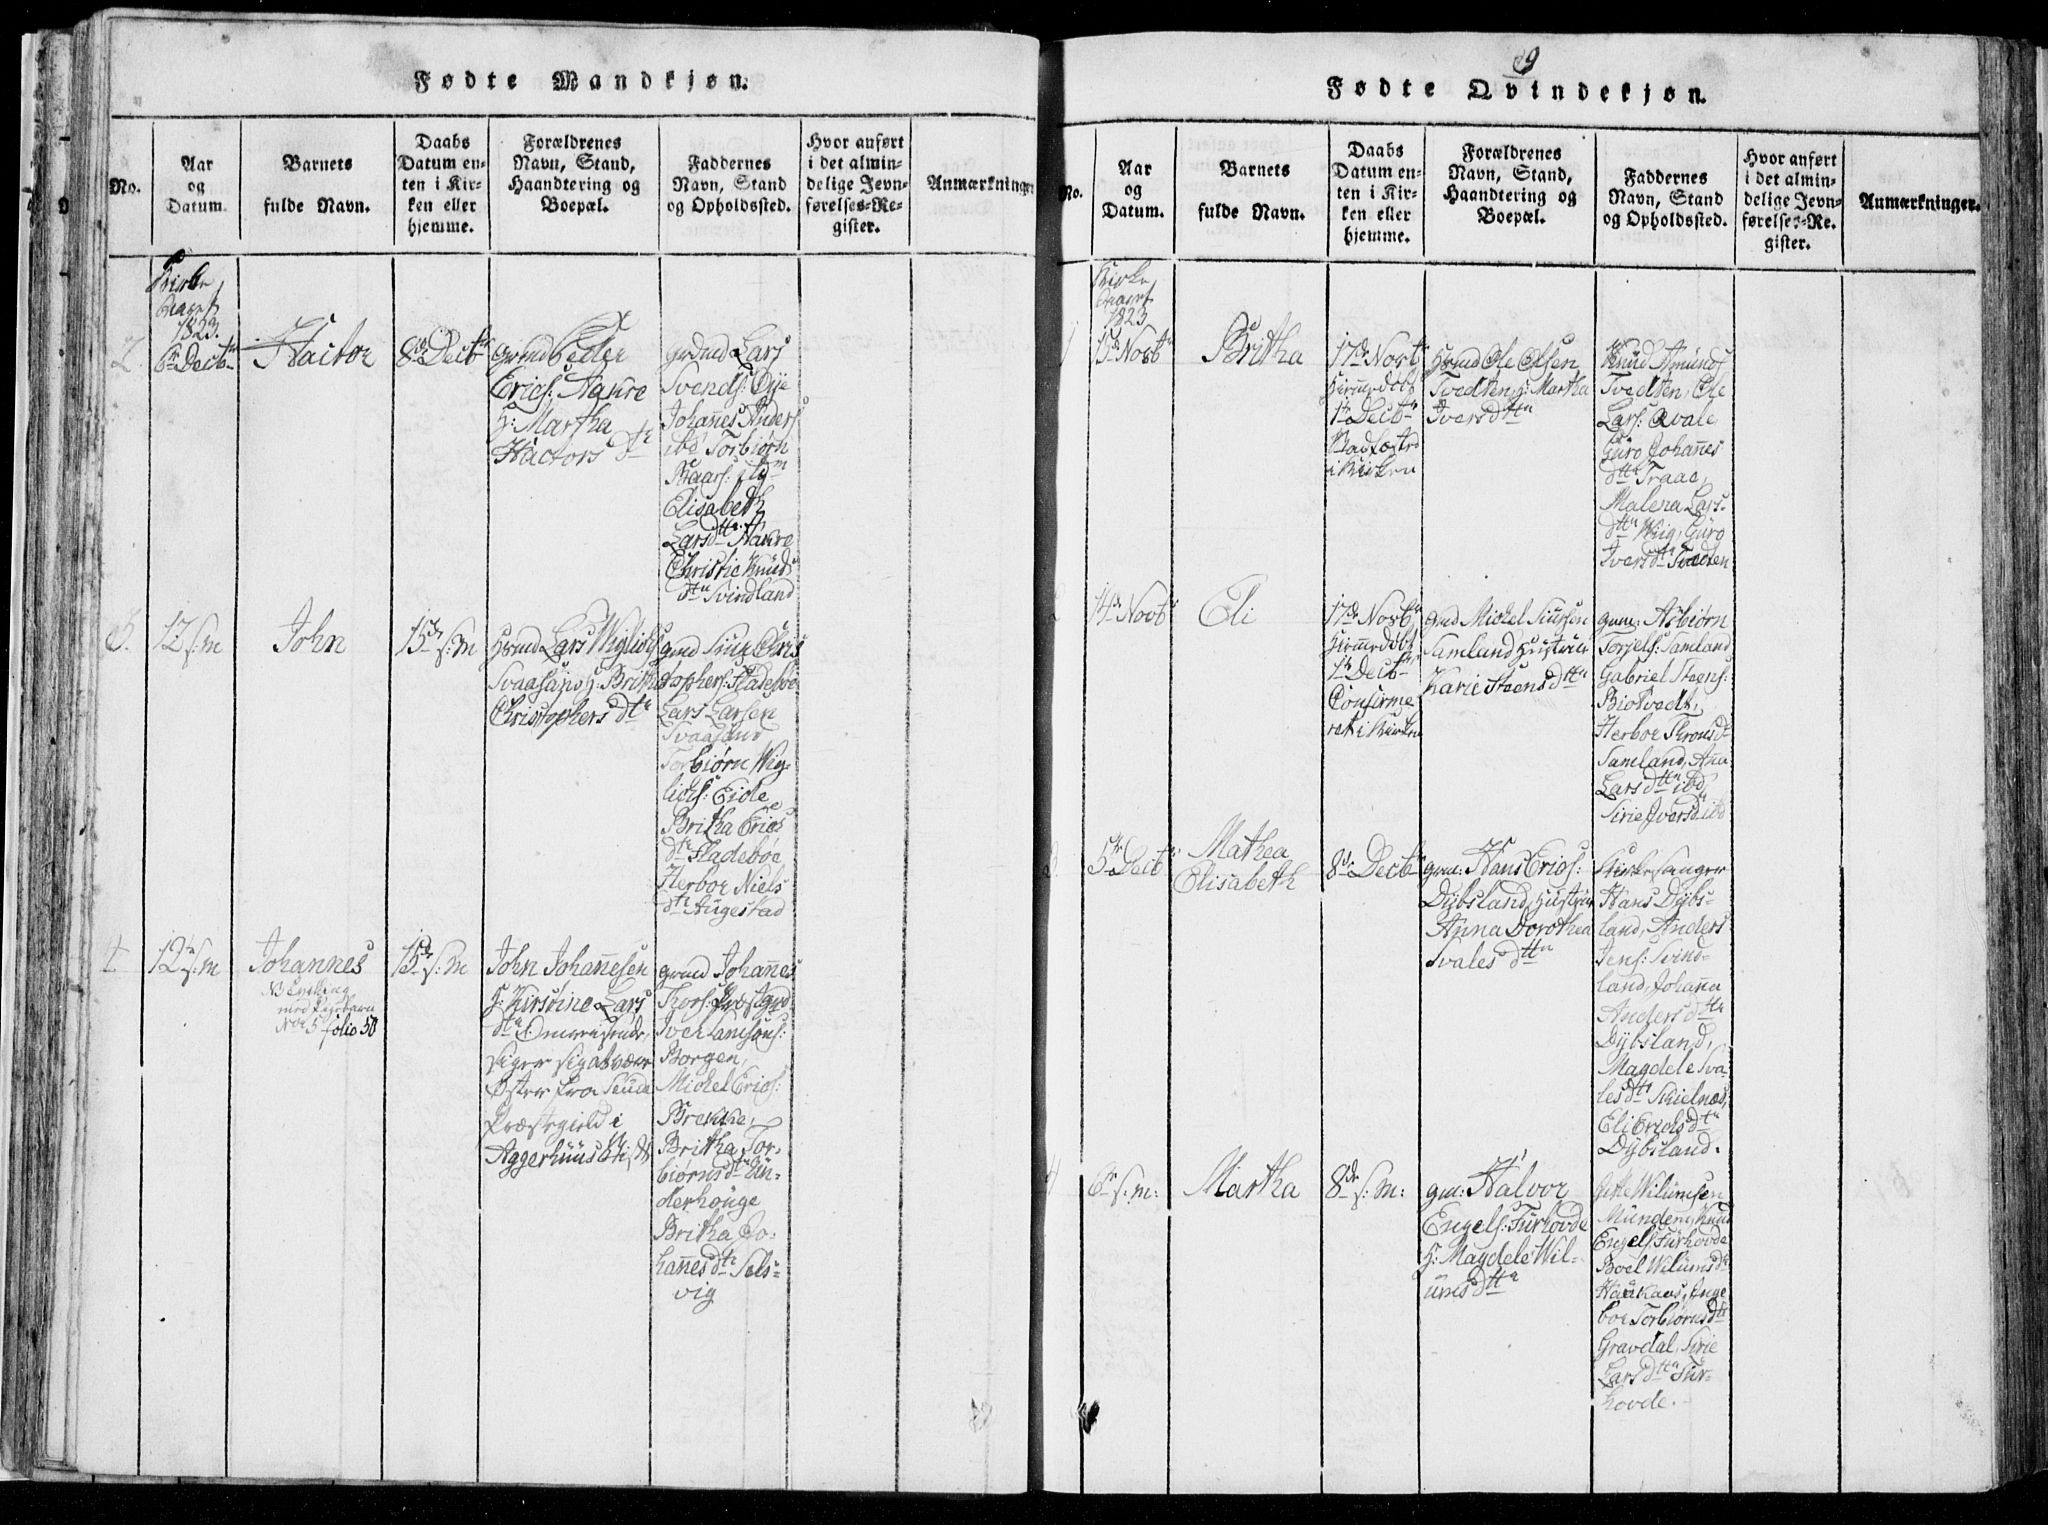 Fødte Mandkjøn.
No.
Aar
og
Datum.
Barnets
fulde Navn.
Daabs
Datum en-
ten i Kir-
ken eller
hjemme.
Forældrenes
Navn, Stand,
Haandtering og
Boepæl.
Faddernes
Navn, Stand
og Opholdssted.
Hvor anført
i det almin-
delige Jevn-
førelses-Re-
gister.
Anmærkninger
Kirke
Aaret
1823.
2.
6te Decbr
Hactor
8de Decbr
Grmd Peder
Erics: Aakre
H: Martha
Hactors dtr
Grdmd Lars
Svends: Øye
Johannes Anders
ibd Torbiørn
Baars:
Elisabeth
Larsdtr Aakre
Christie Knuds
dtr Svindland
3.
12 s:m
John
15de s:m
Grmd Lars Wiglichs
Svaasand H: Britha
Christophers dtr
gmd Siur Chris
tophers: Fladebøe
Lars Larsen
Svaasand
Torbiørn Wig-
lichs: Eide
Britha Erics
dtr Fladebøe
Herbor Niels
dtr Augestad
4
12te s:m
Johannes
NB Tvilling
med Pigebarn
Nr 5 folio 50
15de s:m
John Johannesen
H: Kirstine Lars
dtr Omreisende,
siger sig at være
Øster fra Seude
Præstegield i
Aggerhuus Stift
grmd Johannes
Thors: Præstgrd
Iver Samsons:
Borgen,
Michel Erics:
Brekke,
Britha Tor-
biørnsdtr Un-
derhouge
Britha Jo-
hannesdtr Sels-
vig
9
Fødte Qvindekjøn.
No.
Aar
og
Datum.
Barnets
fulde Navn.
Daabs
Datum en-
ten i Kir-
ken eller
hjemme.
Forældrenes
Navn, Stand,
Haandtering og
Boepæl.
Faddernes
Navn, Stand
og Opholdssted.
Hvor anført
i det almin-
delige Jevn-
førelses-Re-
gister.
Anmærkninger.
Kirke
Aaret
1823
1
15de Novbr
Britha
17de Novbr
hiemmedøbt
1te Decbr
Badfæsted
i Kirken
Grmd Ole Olsen
Tvedten, H: Martha
Iversdtr
Knud Amunds
Tvedten, Ole
Lars: Qvale
Guro Johannes
dtr Traae,
Malena Lars-
dtr Wiig, Guro
Iversdtr Tvedten
14de Novbr
Eli
17de Novbr
hiemmedøbt
1te Decbr
Confirme
ret i Kirken
gmd Michel Siursen
Samland Hustrue
Karie Steensdtr
gmd: Asbiørn
Torgels: Samland
Gabriel Steens:
Biotvedt,
Herbor Thronsdtr
Samland, Ana
Larsdtr ibd,
Sirie Iversdtr ibd
3
5te Decbr
Mathea
Elisabeth
8de Decbr
gmd: Hans Erics:
Dybsland, Hustrue
Anna Dorothea
Svalesdtr
Kirkesanger
Hans Dybs-
land, Anders
Jens: Svind-
land, Johana
Andersdtr
Dybsland,
Magdele Sva-
lesdtr Skielnæs,
Eli Ericsdtr
Dybsland.
4
6te s:m:
Martha
8de s:m:
gmd: Halvor
Engels: Furhovde
H: Magdele Wil-
umsdtr
Gitle Wilumsen
Munden, Knud
Engels: Furhovde
Boel Wilumsdtr
Haukaas, Inge
bor Torbiørnsdtr
Gravdal, Sirie
Larsdtr Fur-
hovde.